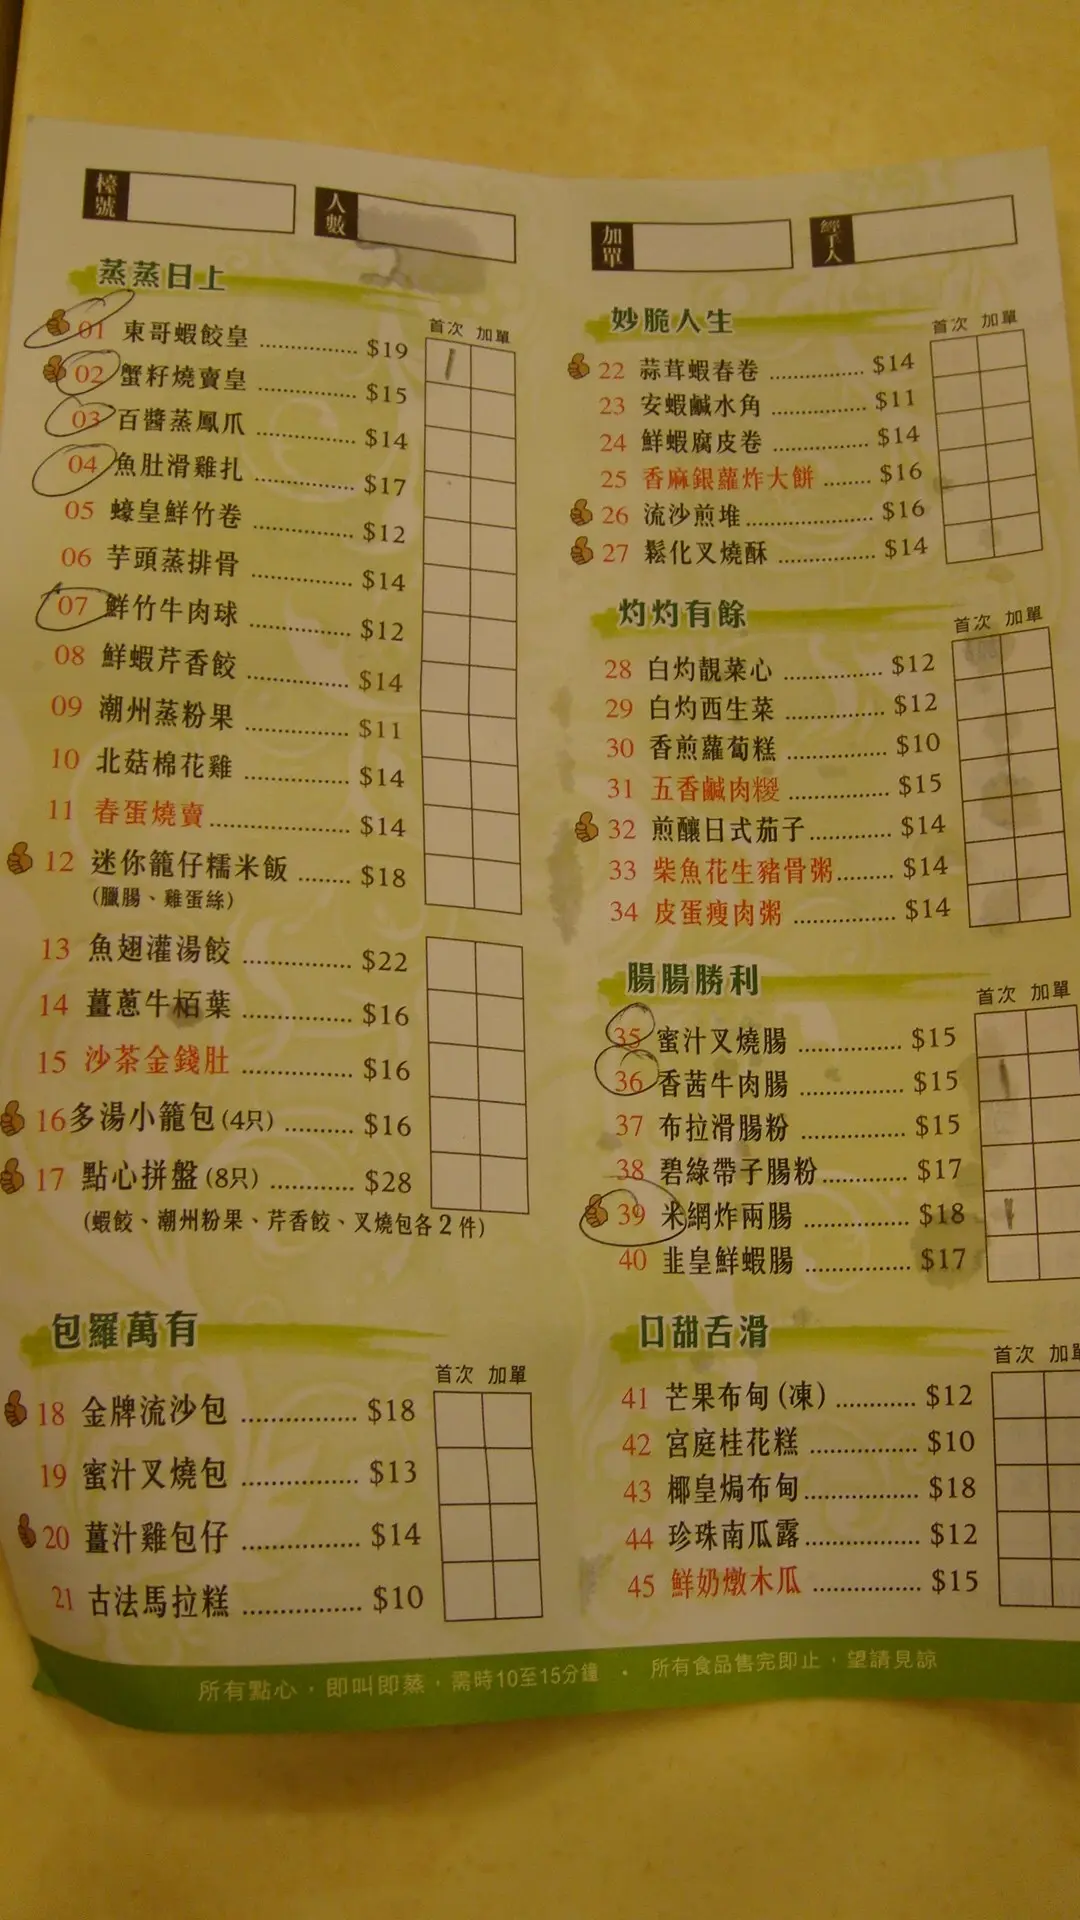 檯號
人數
蒸蒸日上
首次 加單
01 東哥蝦餃皇 .............. $19
02 蟹籽燒賣皇 .............. $15
03 百醬蒸鳳爪 .............. $14
04 魚肚滑雞扎 .............. $17
05 蠔皇鮮竹卷 .............. $12
06 芋頭蒸排骨 .............. $14
07 鮮竹牛肉球 .............. $12
08 鮮蝦芹香餃 .............. $14
09 潮州蒸粉果 .............. $11
10 北菇棉花雞 .............. $14
11 春蛋燒賣 .............. $14
12 迷你籠仔糯米飯 ........ $18
(臘腸、雞蛋絲)
13 魚翅灌湯餃 .............. $22
14 薑蔥牛栢葉 .............. $16
15 沙茶金錢肚 .............. $16
16 多湯小籠包 (4只) .......... $16
17 點心拼盤 (8只) ............ $28
(蝦餃、潮州粉果、芹香餃、叉燒包各2件)
包羅萬有
首次 加單
18 金牌流沙包 .............. $18
19 蜜汁叉燒包 .............. $13
20 薑汁雞包仔 .............. $14
21 古法馬拉糕 .............. $10
加單
經手人
妙脆人生
首次 加單
22 蒜茸蝦春卷 .............. $14
23 安蝦鹹水角 .............. $11
24 鮮蝦腐皮卷 .............. $14
25 香麻銀蘿炸大餅 ....... $16
26 流沙煎堆 .............. $16
27 鬆化叉燒酥 .............. $14
灼灼有餘
首次 加單
28 白灼靚菜心 .............. $12
29 白灼西生菜 .............. $12
30 香煎蘿蔔糕 .............. $10
31 五香鹹肉糉 .............. $15
32 煎釀日式茄子 ........... $14
33 柴魚花生豬骨粥 ........ $14
34 皮蛋瘦肉粥 .............. $14
腸腸勝利
首次 加單
35 蜜汁叉燒腸 .............. $15
36 香茜牛肉腸 .............. $15
37 布拉滑腸粉 .............. $15
38 碧綠帶子腸粉 ........... $17
39 米網炸兩腸 .............. $18
40 韭皇鮮蝦腸 .............. $17
口甜舌滑
首次 加單
41 芒果布甸 (凍) ........... $12
42 宮庭桂花糕 .............. $10
43 椰皇焗布甸 .............. $18
44 珍珠南瓜露 .............. $12
45 鮮奶燉木瓜 .............. $15
所有點心，即叫即蒸，需時10至15分鐘 • 所有食品售完即止，望請見諒